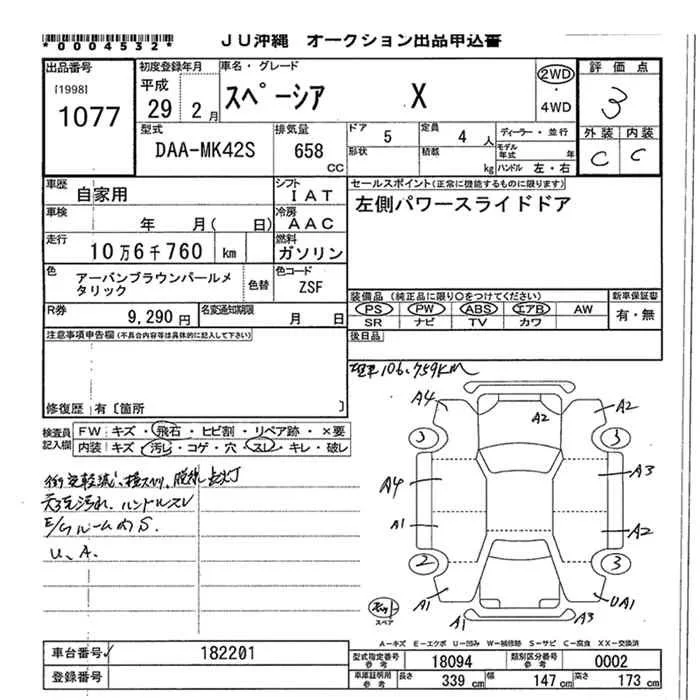 *0004532*
JU沖縄 オークション出品申込書
出品番号
[1998]
1077
初度登録年月
平成
29 2月
車名・グレード
スペーシア X
2WD
・
4WD
評価点
3
外装 内装
C C
型式
DAA-MK42S
排気量
658
CC
ドア 5
形状
定員 4人
積載 kg
ディーラー・並行
モデル年式 年
ハンドル 左・右
車歴 自家用
シフト
IAT
車検 年 月( 日)
冷房
AAC
走行 10万6千760 km
燃料
ガソリン
色
アーバンブラウンパールメタリック
色替
色コード
ZSF
R券 9,290円
名変通知期限
月 日
セールスポイント(正常に機能するものに限ります)
左側パワースライドドア
装備品(純正品に限り○をつけてください)
PS PW ABS エアB AW
SR ナビ TV カワ
新車保証書
有・無
後日品
注意事項申告欄(不具合内容等は具体的に記入して下さい)
修復歴 有〔箇所 〕
検査員記入欄
FW キズ・飛石・ヒビ割・リペア跡・×要
内装 キズ・汚レ・コゲ・穴・スレ・キレ・破レ
天汚れ、ハンドルスレ
E/GルームのS.
U、A.
106.759KM
A4
A2
A2
3
3
A4
A3
A1
A2
2
3
A1
UA1
A1
A3
スペア
A-キズ E-エクボ U-凹み W-補修跡 S-サビ C-腐食 XX-交換済
車台番号 182201
登録番号
型式指定番号
参考
18094
類別区分番号
参考
0002
車庫証明用
参考
長さ 339cm 幅 147cm 高さ 173cm